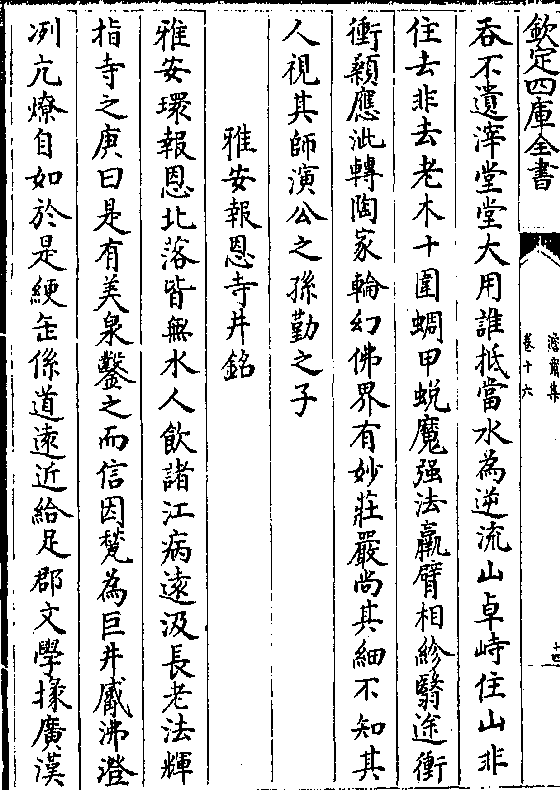 欽定四庫全書
卷十六
吞不遺滓堂堂大用誰抵當水為逆流山卓峙住山非
住去非去老木十圍蜩甲蛻魔强法羸臂相紾翳途衝
衝顙應泚轉陶家輪幻佛界有妙莊嚴尚其細不知其
人視其師演公之孫勤之子
雅安報恩寺井銘
雅安環報恩北落皆無水人飲諸江病遠汲長老法輝
指寺之庚曰是有美泉鑿之而信因甃為巨井觱沸澄
冽亢燎自如於是綆缶係道遠近給足郡文學掾廣漢